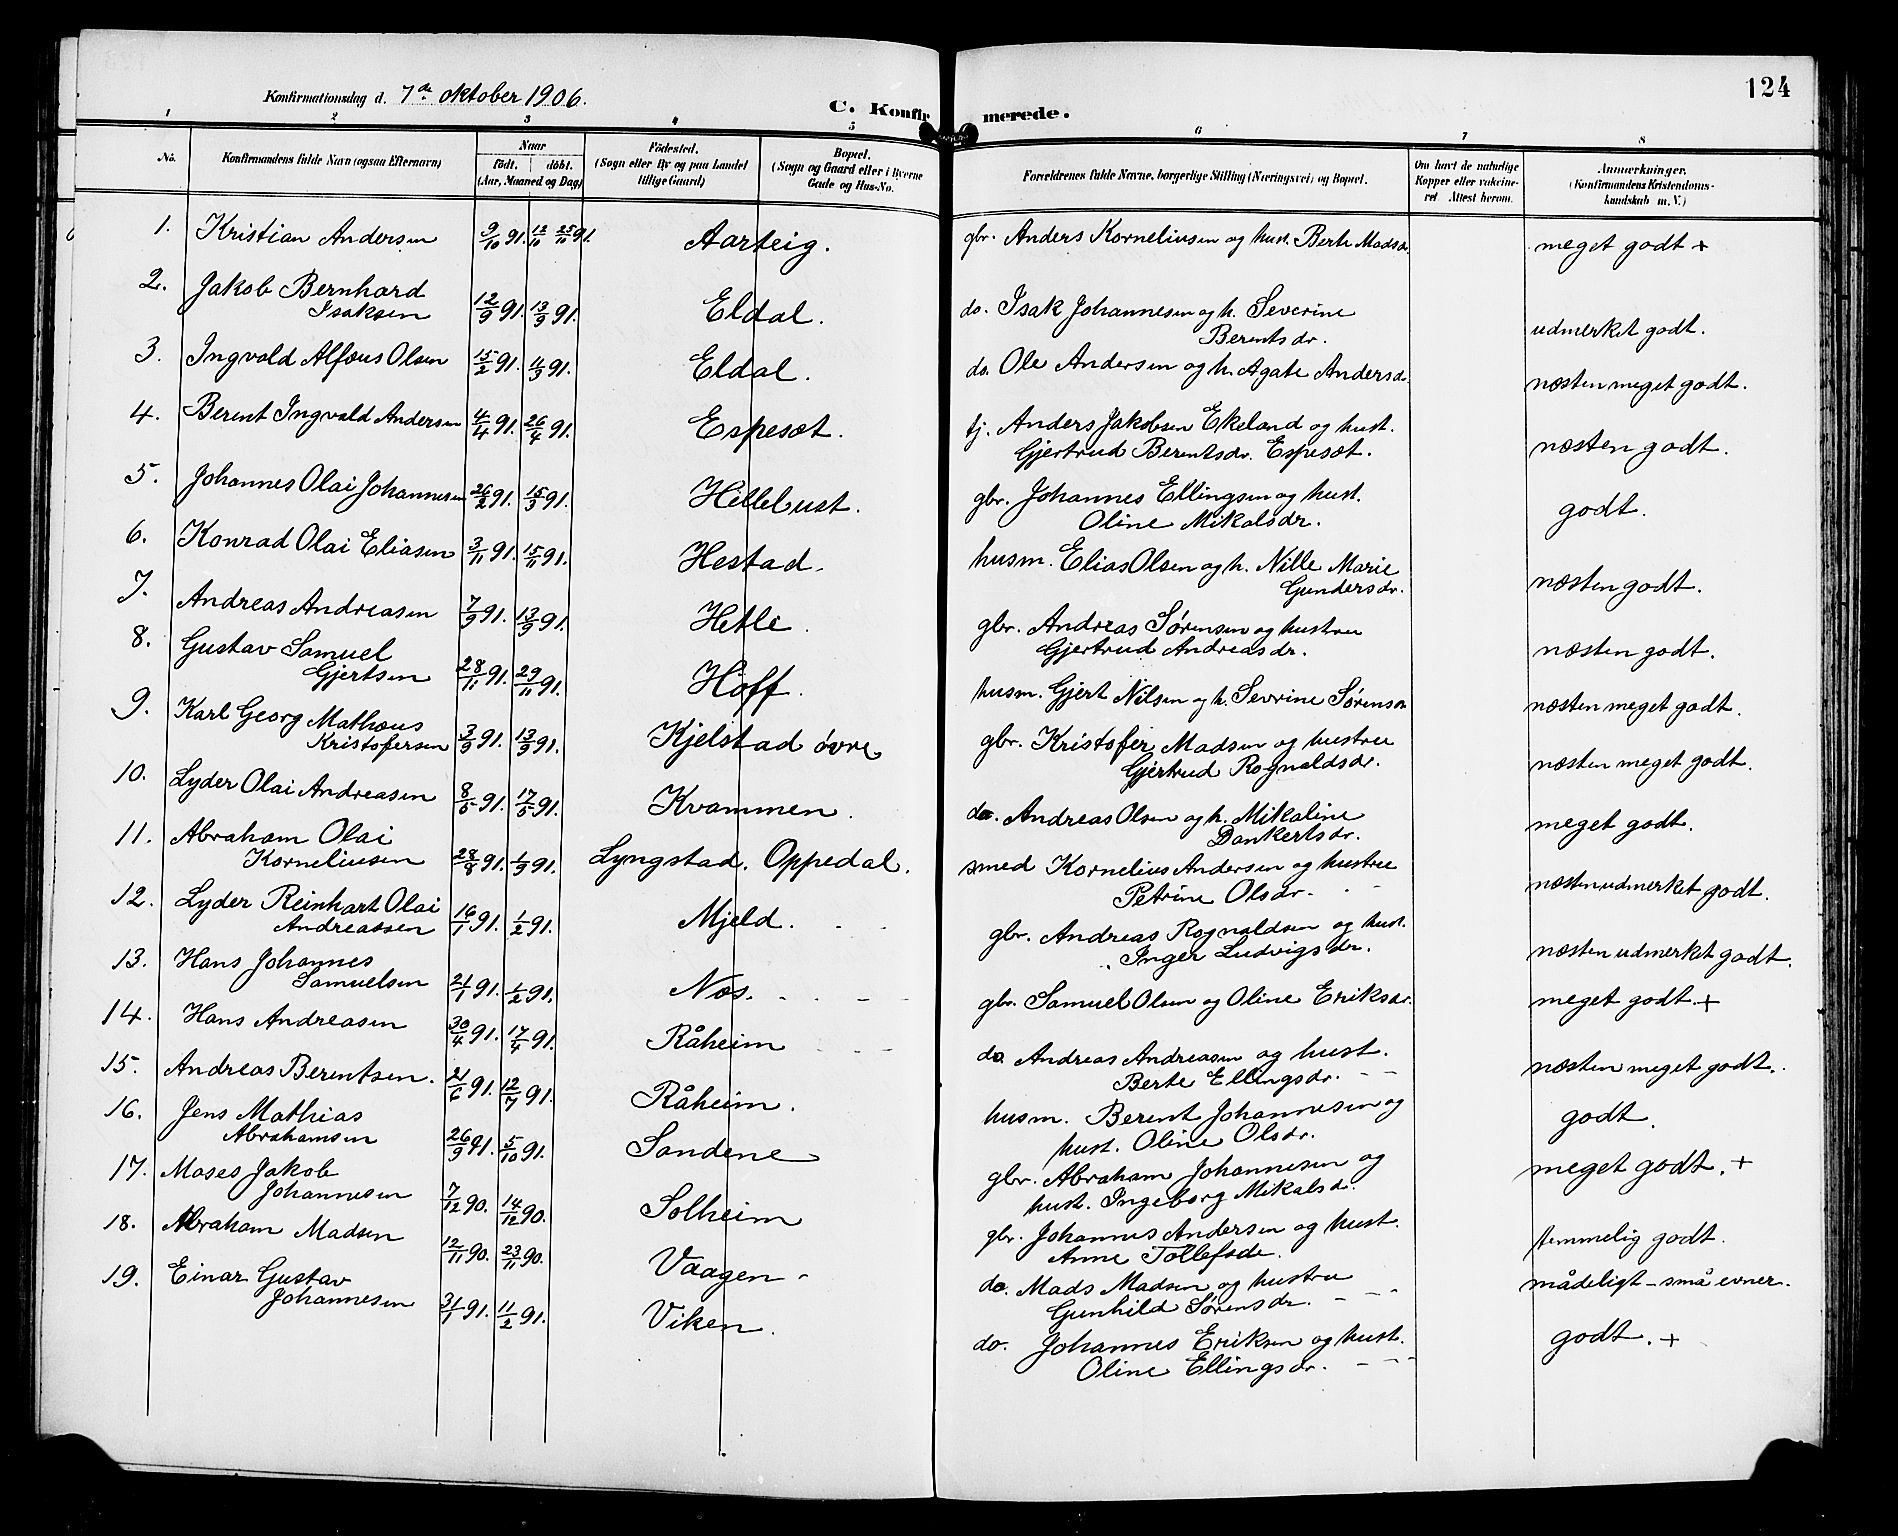 124
Konfirmationsdag d. 7de oktober 1906.
C. Konfirmerede.
1 2 3 4 5 6 7 8
No. Konfirmandens fulde Navn (ogsaa Efternavn) Naar födt. döbt. (Aar, Maaned og Dag) Födested. (Sogn eller By og paa Landet tillige Gaard) Bopæl. (Sogn og Gaard eller i Byerne Gade og Hus-No. Forældrenes fulde Navne, borgerlige Stilling (Næringsvei) og Bopæl. Om havt de naturlige Kopper eller vakcineret Attest herom. Anmærkninger. (Konfirmandens Kristendomskundskab m. V.)
1. Kristian Andersen 9/10 91. 25/10 91. Aarteig. gbr. Anders Korneliusen og hust. Berte Madsdr. meget godt +
2. Jakob Bernhard Isaksen 12/9 91. 13/9 91. Eldal. do. Isak Johannesen og h. Severine Berentsdr. udmerket godt.
3. Ingvald Alfons Olsen 15/2 91. 1/3 91. Eldal. do. Ole Andersen og h. Agate Andersdr. næsten meget godt.
4. Berent Ingvald Andersen 4/4 91. 26/4 91. Espesæt. tj. Anders Jakobsen Ekeland og hust. Gjertrud Berentsdr. Espesæt. næsten godt.
5. Johannes Olai Johannesen 26/2 91. 15/3 91. Hellebust. gbr. Johannes Ellingsen og hust. Oline Mikalsdr. godt.
6. Konrad Olai Eliasen 3/11 91. 15/11 91. Hestad. husm. Elias Olsen og h. Nille Marie Gundersdr. næsten godt.
7. Andreas Andreasen 7/9 91. 13/9 91. Hetle. gbr. Andreas Sørensen og hustru Gjertrud Andreasdr. næsten godt.
8. Gustav Samuel Gjertsen 28/11 91. 29/11 91. Hoff. husm. Gjert Nilsen og h. Sevrine Sørensdr næsten meget godt.
9. Karl Georg Mathæus Kristofersen 3/9 91. 13/9 91. Kjelstad øvre gbr. Kristofer Madsen og hustru Gjertrud Rognaldsdr. næsten meget godt.
10. Lyder Olai Andreasen 8/5 91. 17/5 91. Kvammen. do. Andreas Olsen og h. Mikaline Dankertsdr. meget godt.
11. Abraham Olai Korneliusen 28/8 91. 1/9 91. Lyngstad. Oppedal. smed Kornelius Andersen og hustru Petrine Olsdr. næsten udmerket godt.
12. Lyder Reinhart Olai Andreassen 16/1 91. 1/2 91. Mjeld. gbr. Andreas Rognaldsen og hust. Inger Ludvigsdr. næsten udmerket godt.
13. Hans Johannes Samuelsen 21/1 91. 1/2 91. Nes. gbr. Samuel Olsen og Oline Eriksdr. meget godt. +
14. Hans Andreasen 30/4 91. 17/4 91. Råheim do. Andreas Andreasen og hust. Berte Ellingsdr. næsten meget godt.
15. Andreas Berentsen. 21/6 91. 12/7 91. Råheim. husm. Berent Johannesen og hust. Oline Olsdr. godt.
16. Jens Mathias Abrahamsen 26/9 91. 5/10 91. Sandene gbr. Abraham Johannesen og hust. Ingeborg Mikalsdr. meget godt. +
17. Moses Jakob Johannesen 7/12 90. 14/12 90. Solheim gbr. Johannes Andersen og hust. Anne Tollefsdr. temmelig godt.
18. Abraham Madsen 12/11 90. 23/11 90. Vaagen do. Mads Madsen og hustru Gunhild Sørensdr. mådeligt - små evner.
19. Einar Gustav Johannesen 31/1 91. 11/2 91. Viken. do. Johannes Eriksen og hust. Oline Ellingsdr. godt. +